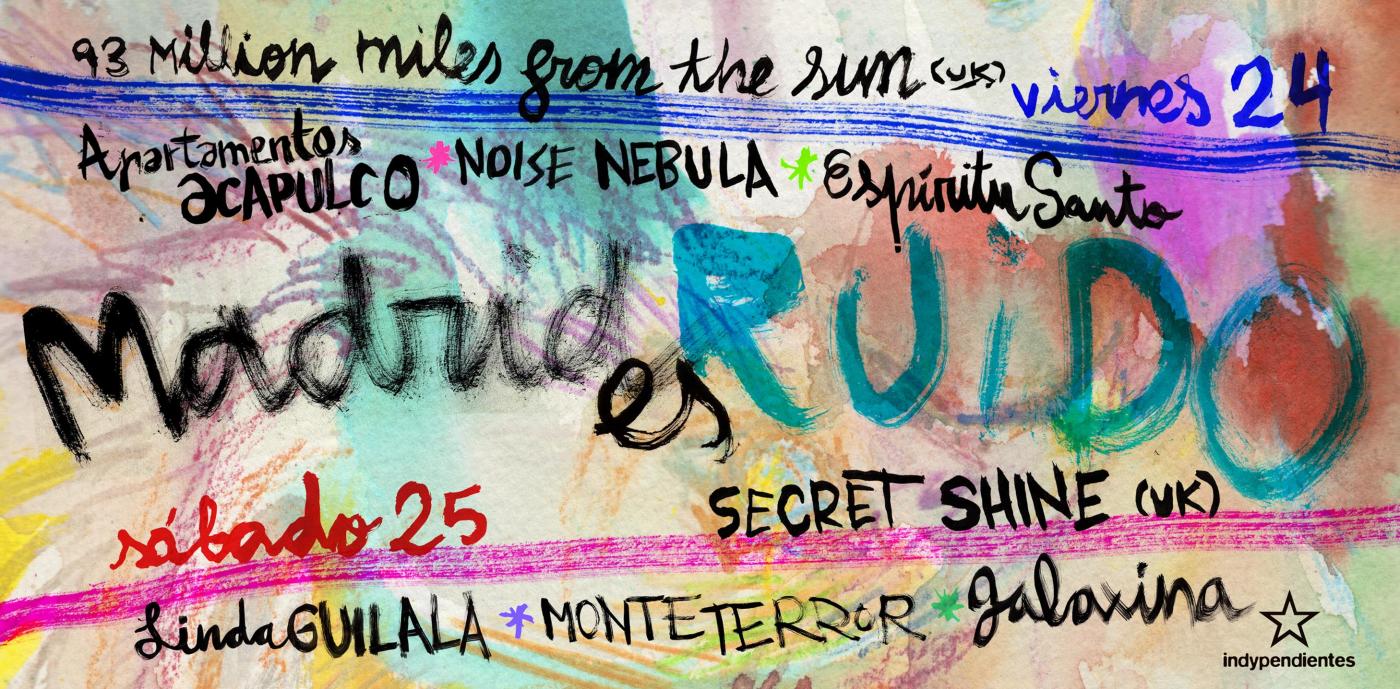 93 Million miles from the sun (UK)
viernes 24
Apartamentos ACAPULCO * NOISE NEBULA * Espíritu Santo
Madrid es RUiDO
sábado 25
SECRET SHINE (UK)
Linda GUILALA * MONTETERROR * Galaxina
indypendientes